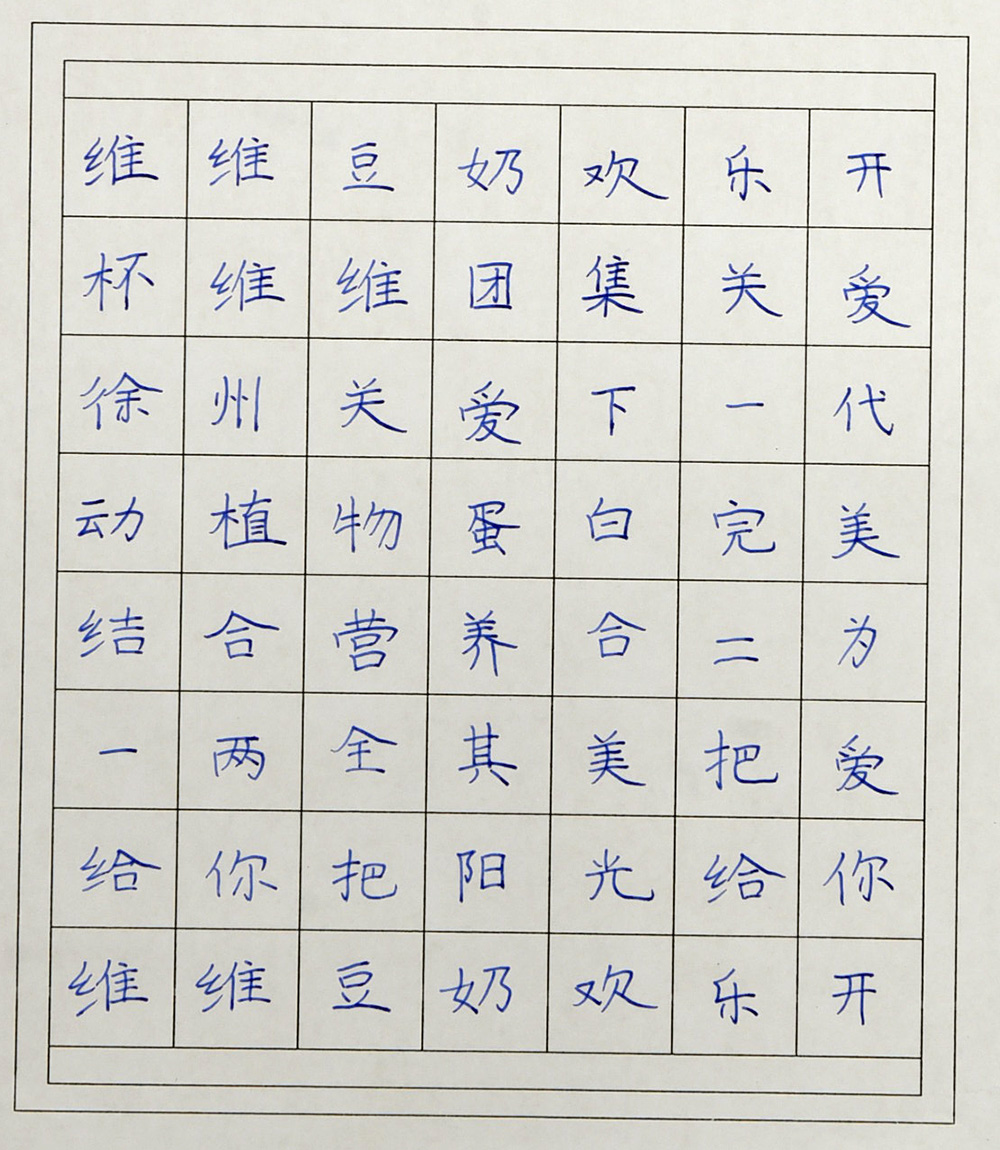 维维豆奶欢乐开
杯维维团集关爱
徐州关爱下一代
动植物蛋白完美
结合营养合二为
一两全其美把爱
给你把阳光给你
维维豆奶欢乐开